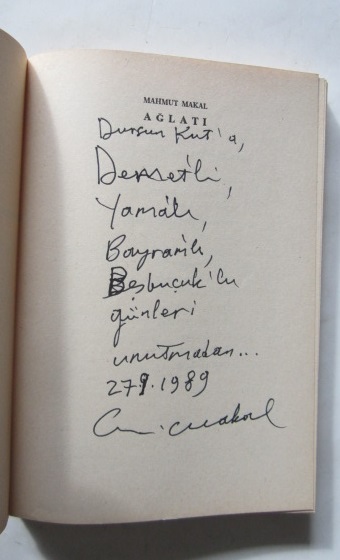 MAHMUT MAKAL
AĞLATI
Dursun Kut'a,
Demset'li,
Yamalı,
Bayramlı,
Beşbuçuk'lu
günleri
unutmadan...
27.9.1989
M. Makal